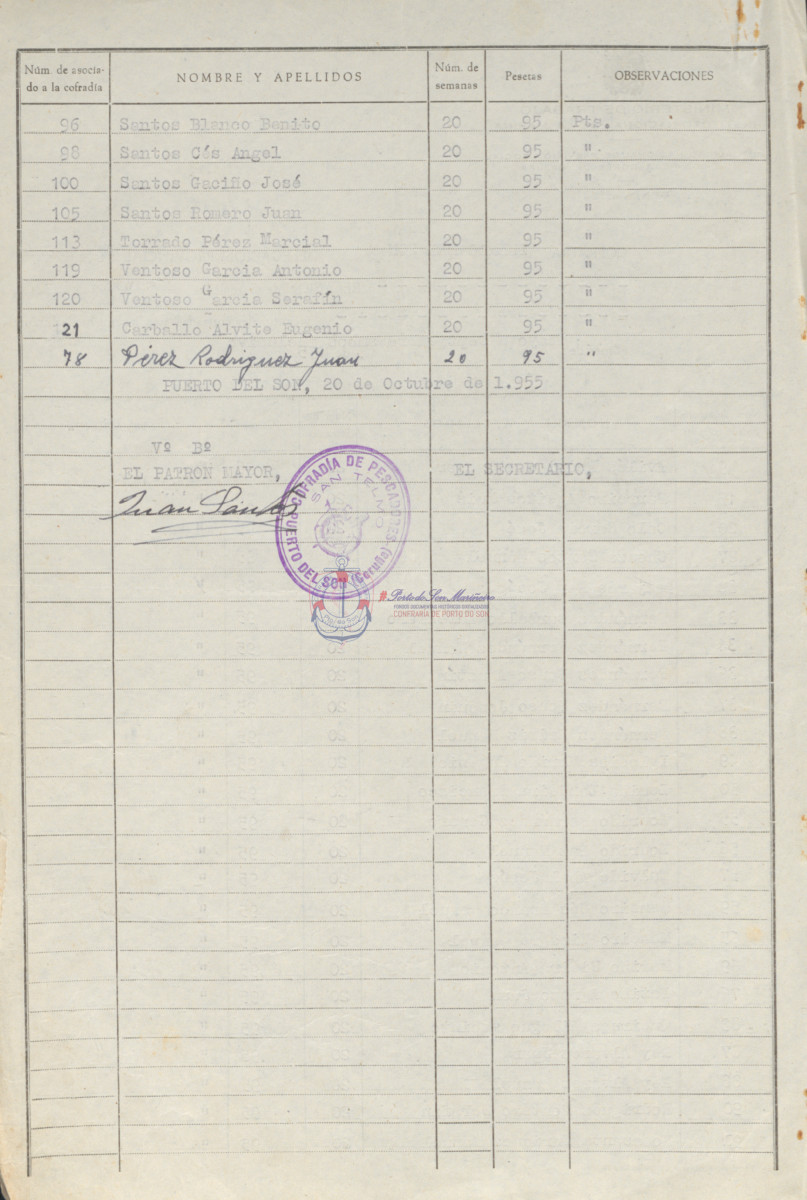 Núm. de asocia-
do a la cofradía
NOMBRE Y APELLIDOS
Núm. de
semanas
Pesetas
OBSERVACIONES
96 Santos Blanco Benito 20 95 Pts.
98 Santos Cés Angel 20 95 "
100 Santos Gaciño José 20 95 "
105 Santos Romero Juan 20 95 "
113 Torrado Pérez Marcial 20 95 "
119 Ventoso Garcia Antonio 20 95 "
120 Ventoso Garcia Serafín 20 95 "
21 Carballo Alvite Eugenio 20 95 "
78 Pérez Rodriguez Juan 20 95 "
PUERTO DEL SON, 20 de Octubre de 1.955
Vº Bº
EL PATRON MAYOR, EL SECRETARIO,
Juan Santos
COFRADÍA DE PESCADORES
SAN TELMO
PUERTO DEL SON (Coruña)
Porto do Son Mariñeiro
FONDOS DOCUMENTAIS HISTÓRICOS DIXITALIZADOS
CONFRARÍA DE PORTO DO SON